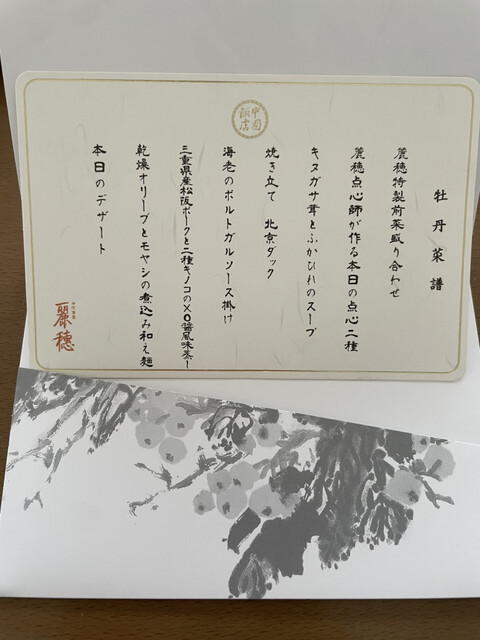 中国飯店
牡丹菜譜
麗穂特製前菜盛り合わせ
麗穂点心師が作る本日の点心二種
キヌガサ茸とふかひれのスープ
焼き立て 北京ダック
海老のポルトガルソース掛け
三重県産松阪ポークと二種キノコのXO醤風味蒸し
乾燥オリーブとモヤシの煮込み和え麺
本日のデザート
麗穂